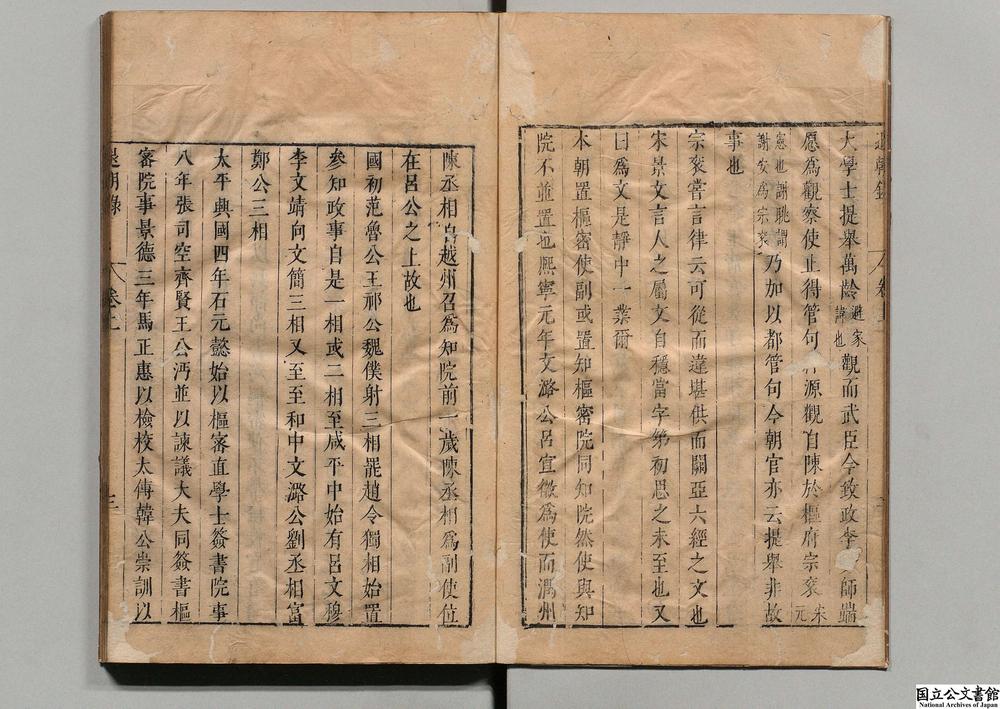 退朝錄 卷上
大學士提舉萬齡避家諱也觀而武臣今致政李 師端
愿爲觀察使止得管句 源觀自陳於樞府宗衮宋元
憲也謝眺謂謝安爲宗衮乃加以都管句今朝官亦云提舉非故
事也
宗衮嘗言律云可從而違堪供而闕亞六經之文也
宋景文言人之屬文自穩當字第初思之未至也又
曰爲文是靜中一業爾
本朝置樞密使副或置知樞密院同知院然使與知
院不並置也熙寧元年文潞公呂宣徽爲使而潤州
陳丞相自越州召爲知院前一歲陳丞相爲副使位
在呂公之上故也
國初范魯公王祁公魏僕射三相罷趙令獨相始置
參知政事自是一相或二相至咸平中始有呂文穆
李文靖向文簡三相又至至和中文潞公劉丞相富
鄭公三相
太平興國四年石元懿始以樞密直學士簽書院事
八年張司空齊賢王公沔並以諫議大夫同簽書樞
密院事景德三年馬正惠以檢校太傅韓公崇訓以
退朝錄 卷上 三
国立公文書館
National Archives of Japan